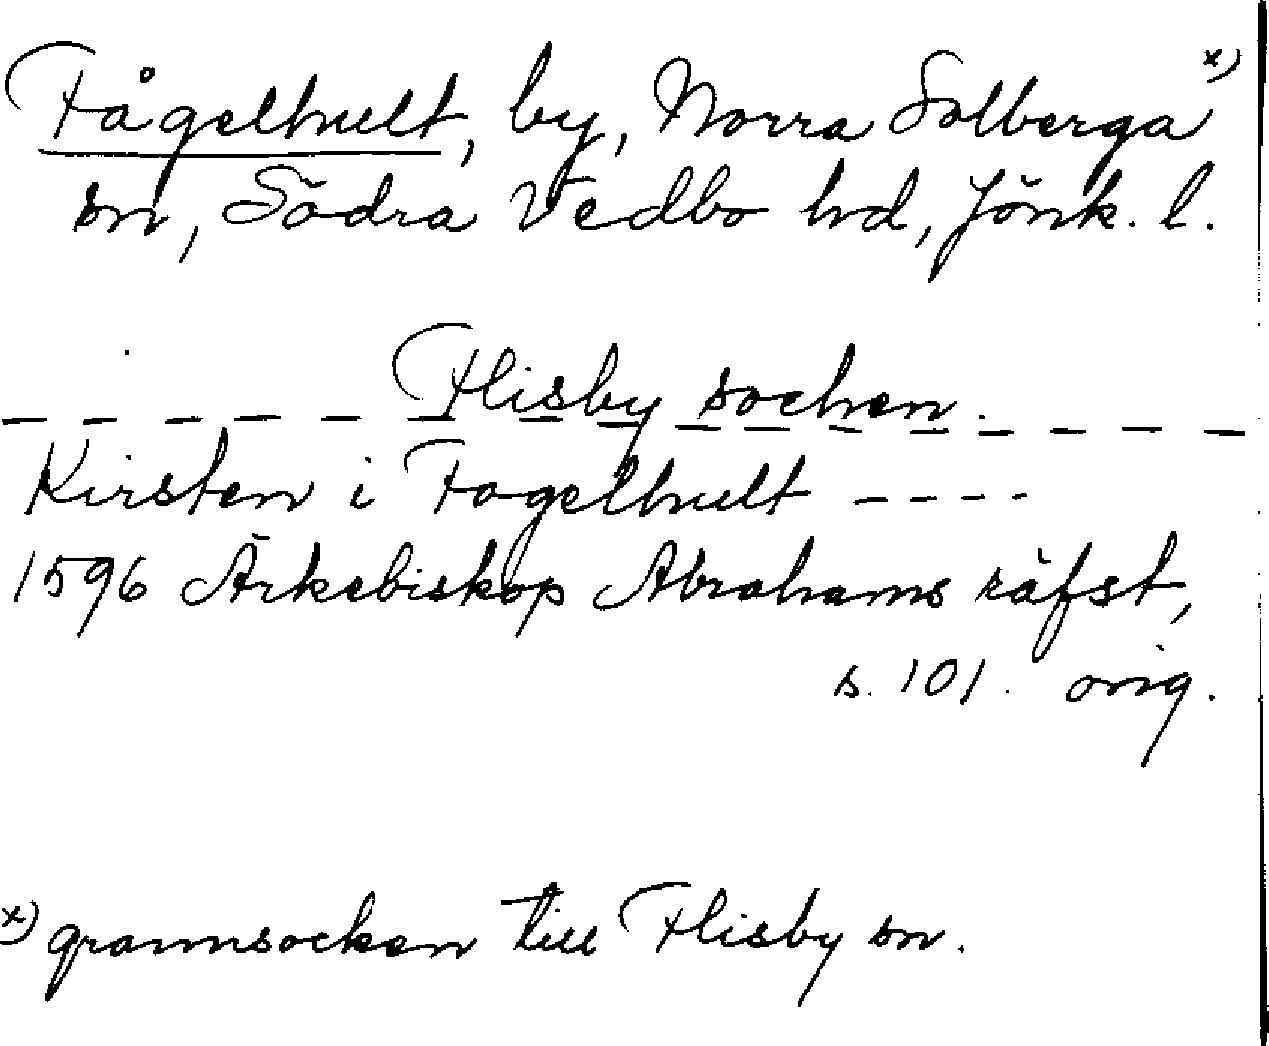 Fågelhult, by, Norra Solberga x)
sn, Södra Vedbo hd, Jönk. l.
Flisby sochen.
Kirsten i Fogelhult ----
1596 Ärkebiskop Abrahams räfst,
s. 101. orig.
x) grannsocken till Flisby sn.